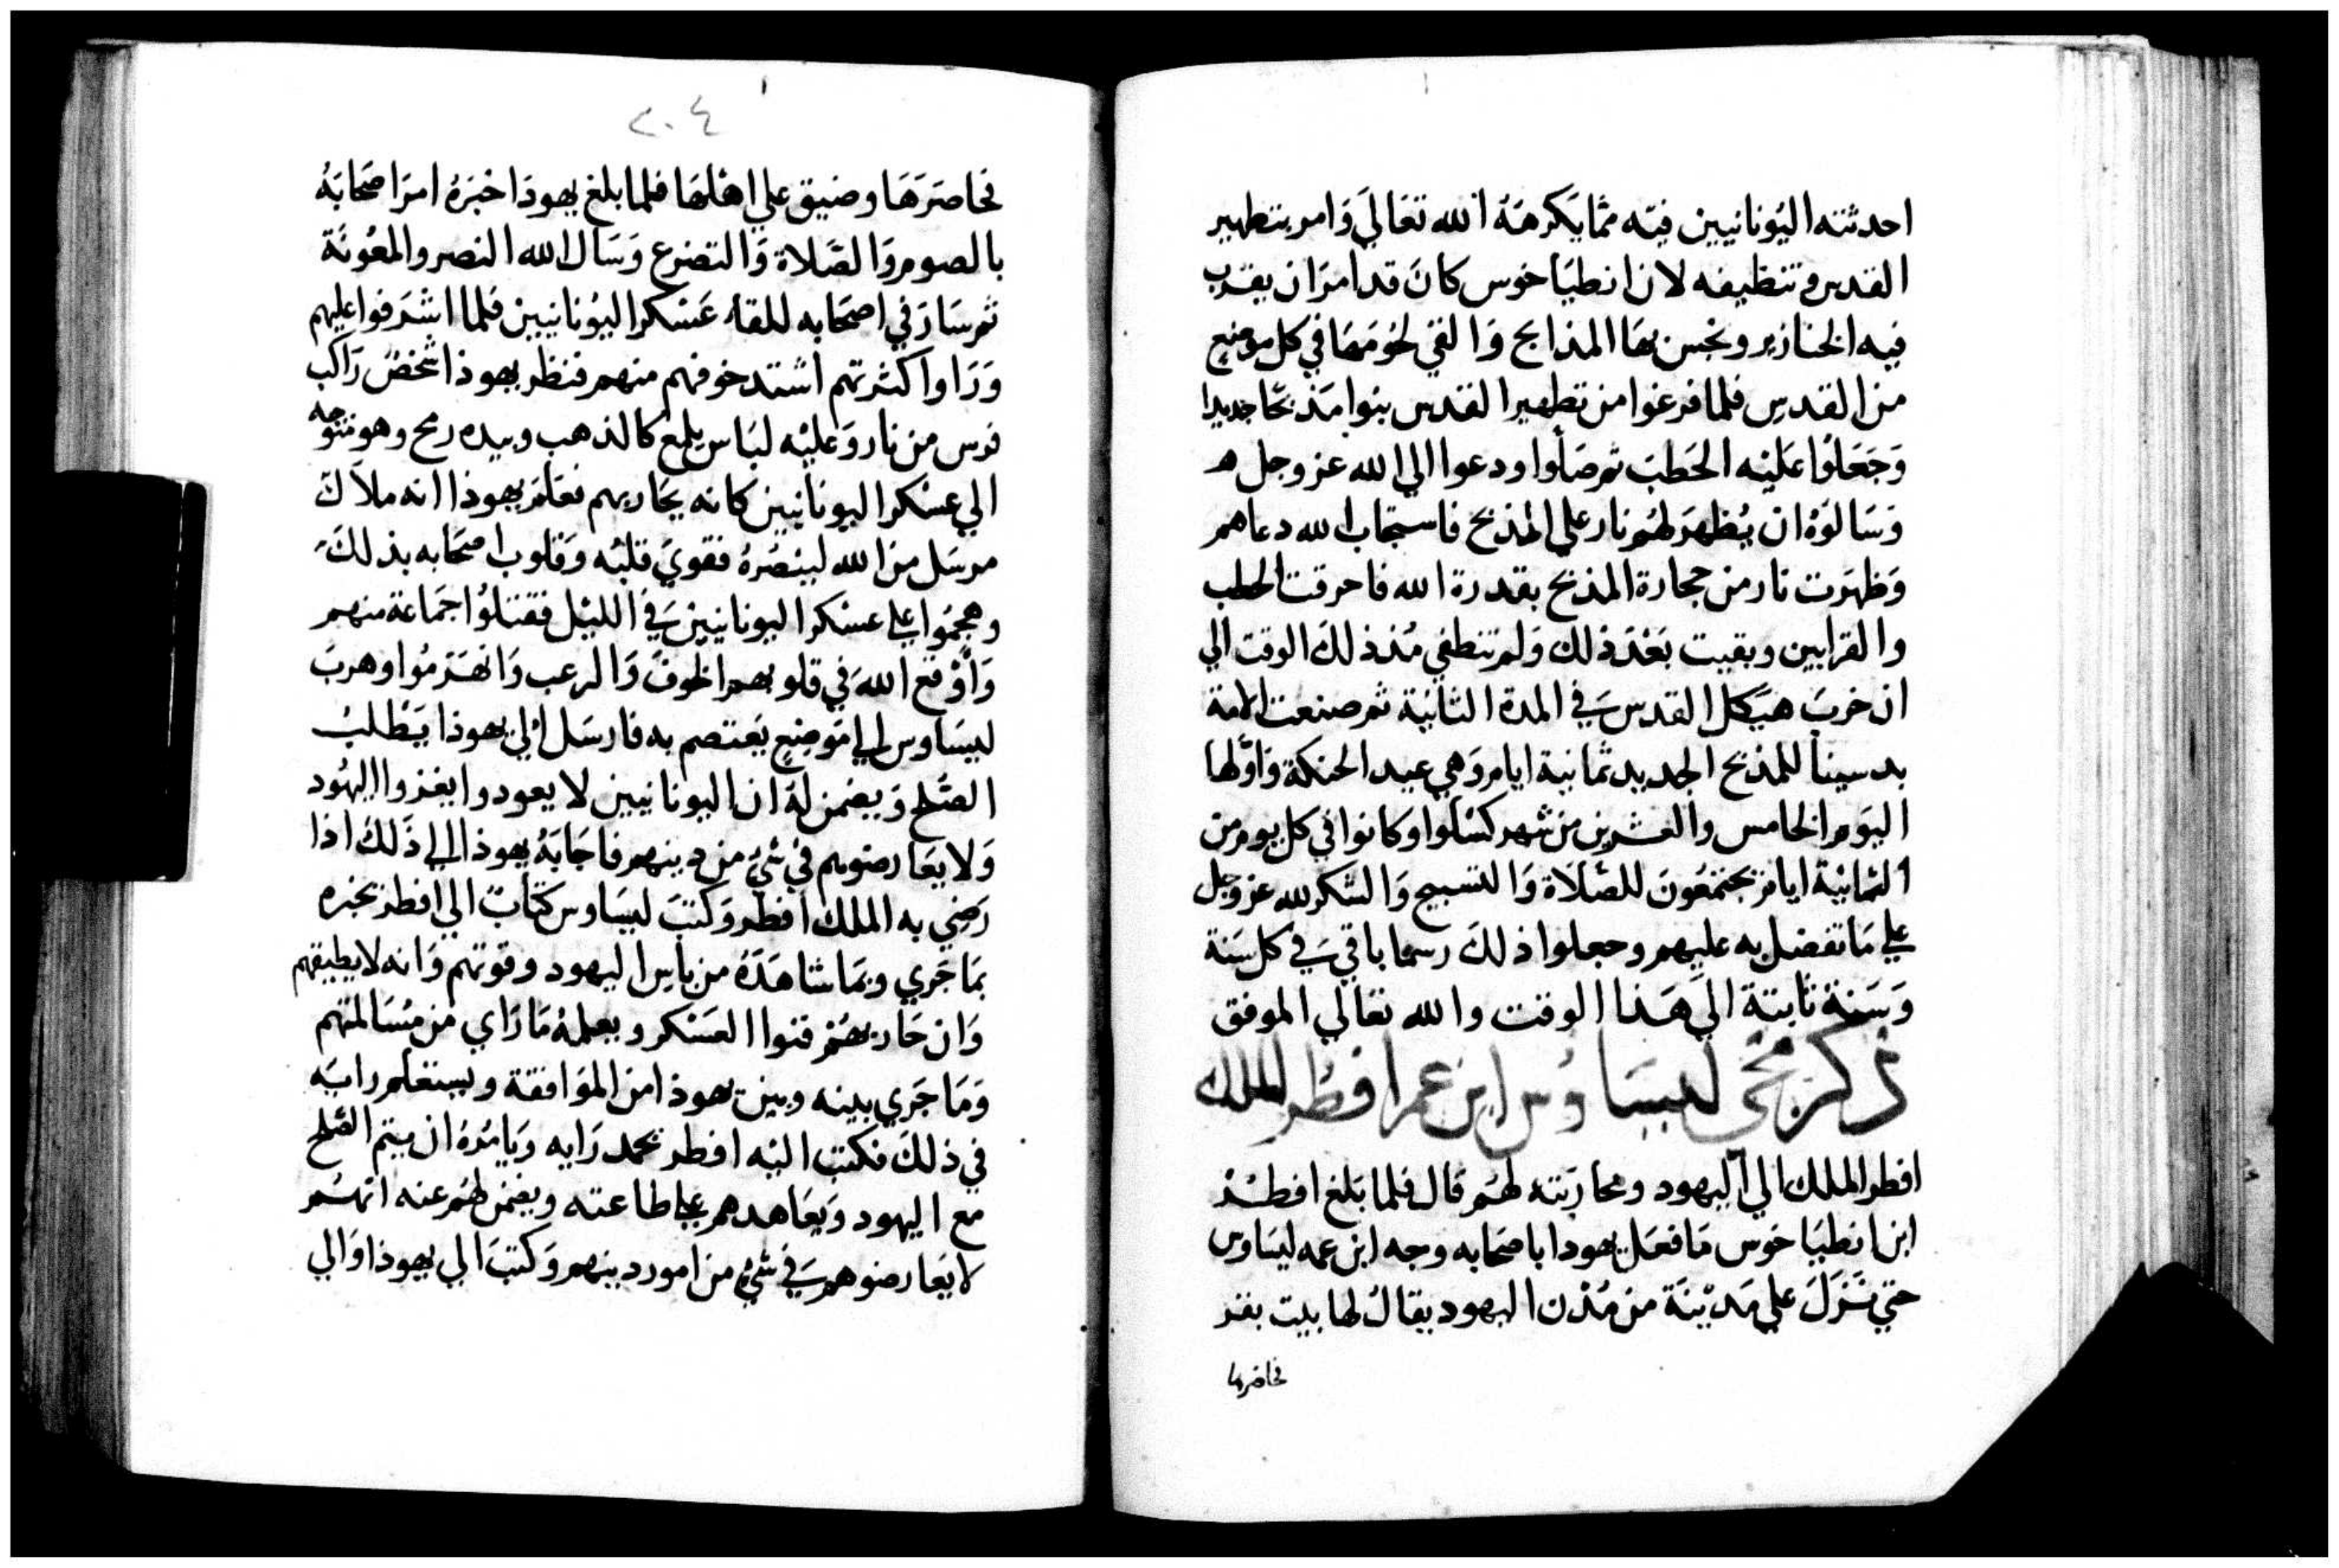 احدثته اليُونانيين فيْه ممّا يَكرهَهُ الله تعَاليَ وَامر بتطهير
القدس وتنظيفه لان انطيَاخوس كانَ قد امرَ ان يقرب
فيه الخنازير ونجس بهَا المذابح وَالقيَ لحُومَهَا في كل موضعٍ
من القدسِ فلما فرغوا من تطهير القدس بنوا مَذبحًا جديدا
وَجَعَلوُا عَليْه الحَطبَ ثم صَلّوا ودعوا الي الله عز وجل
وَسَالوُهُ ان يُظهرَ لهُم نار علي المذبح فاستجَاب الله دعاهم
وَظهرَت نار من حجارة المذبح بقدرة الله فاحرقت الحطب
والقرابين وبقيت بَعْدَ ذلك وَلم تنطفي مُنذ ذلكَ الوقت الي
ان خربَ هيَكل القدس فيَ المدة الثانيَة ثم صنعت الامة
بدسينا للمذبح الجديد ثمانية ايام وَهي عيد الحنكة وَاوَّلها
اليَوم الخامس والعشرين من شهر كسْلوا وكانوا في كل يوم من
الثمانيْة ايام يجتمعُونَ للصّلاة وَالتسبيح وَالشكر لله عز وجل
علي مَا تفضل به عليهم وجعلوا ذلكَ رسما باقي فيَ كل سَنة
وَسَنة ثابتة الي هَذا الوقت والله تعَالي الموفق
ذكر مجَي ليسَاوُس ابن عم افطُر الملك
افطر الملك الي اليهود ومحارَبته لهُم قال فلما بَلغ افطُر
ابن انطيَاخوس مَا فعَل يهودا باصحَابه وجه ابن عمه ليسَاوس
حتي نَزَلَ علي مَديْنَة من مُدْن اليهود يقالُ لها بيت بفتر
فحاصرها
٢٠٤
فحَاصَرَهَا وضيق علي اهْلهَا فلما بلغ يهودَا خبَرَهُ امرَ اصحَابَهُ
بالصوم وَالصَّلاة وَالتضرع وَسَال الله النصر والمعُونَة
ثم سَارَ في اصحَابه للقاء عَسْكر اليُونانيينْ فلما اشرَفوا عليهم
وَرَاوا كثرتهم اشتد خوفهم منهم فنظر يهوذا شخصٌ رَاكب
فرس من نار وَعليْه لبَاس يلمع كالذهب وبيده رمح وهو متوجه
الي عسْكر اليونانيين كانه يحَاربهم فعَلمَ يهوذا انه ملاَك
مرسَل من الله لينصُرهُ فقويَ قلبُه وَقلوب اصحَابه بذلكَ
وهجمُوا علي عسْكر اليونانيينْ فيَ الليْل فقتلوُا جمَاعة منهم
وَاَوْقع الله في قلوبهم الخوفَ وَالرعب وَانهَزمُوا وهربَ
ليسَاوس الي مَوضِعٍ يَعتصم به فارسَل الي يهوذا يَطْلبُ
الصّلح وَيضمن لهَ ان اليونانيين لا يعودوا يغزوا اليهُود
وَلا يعَارضوهم في شيْ من دينهم فاجَابَهُ يهوذا الي ذَلكَ اذا
رَضيَ به الملك افطر وَكتبَ ليسَاوس كتابٌ الي افطر يخبره
بمَا جَري وبمَا شاهَدَهُ من باس اليهود وقوتهم وَانه لا يطيقهم
وَان حَاربهُم فنوا العسَكر ويعلمهُ مَا رَاي من مُسَالمتهم
وَمَا جَري بينه وبين يهوذا من الموَافقة ويستعلم رايَه
في ذلكَ فكتب اليْه افطر يحمد رَايه وَيامُرهُ ان يتم الصّلح
مع اليهود وَيعَاهدهم علي طاعته ويضمن لهُم عنه انهُم
لا يعَارضوهم فيَ شيْ من امور دينهم وَكتبَ الي يهوذا وَالي